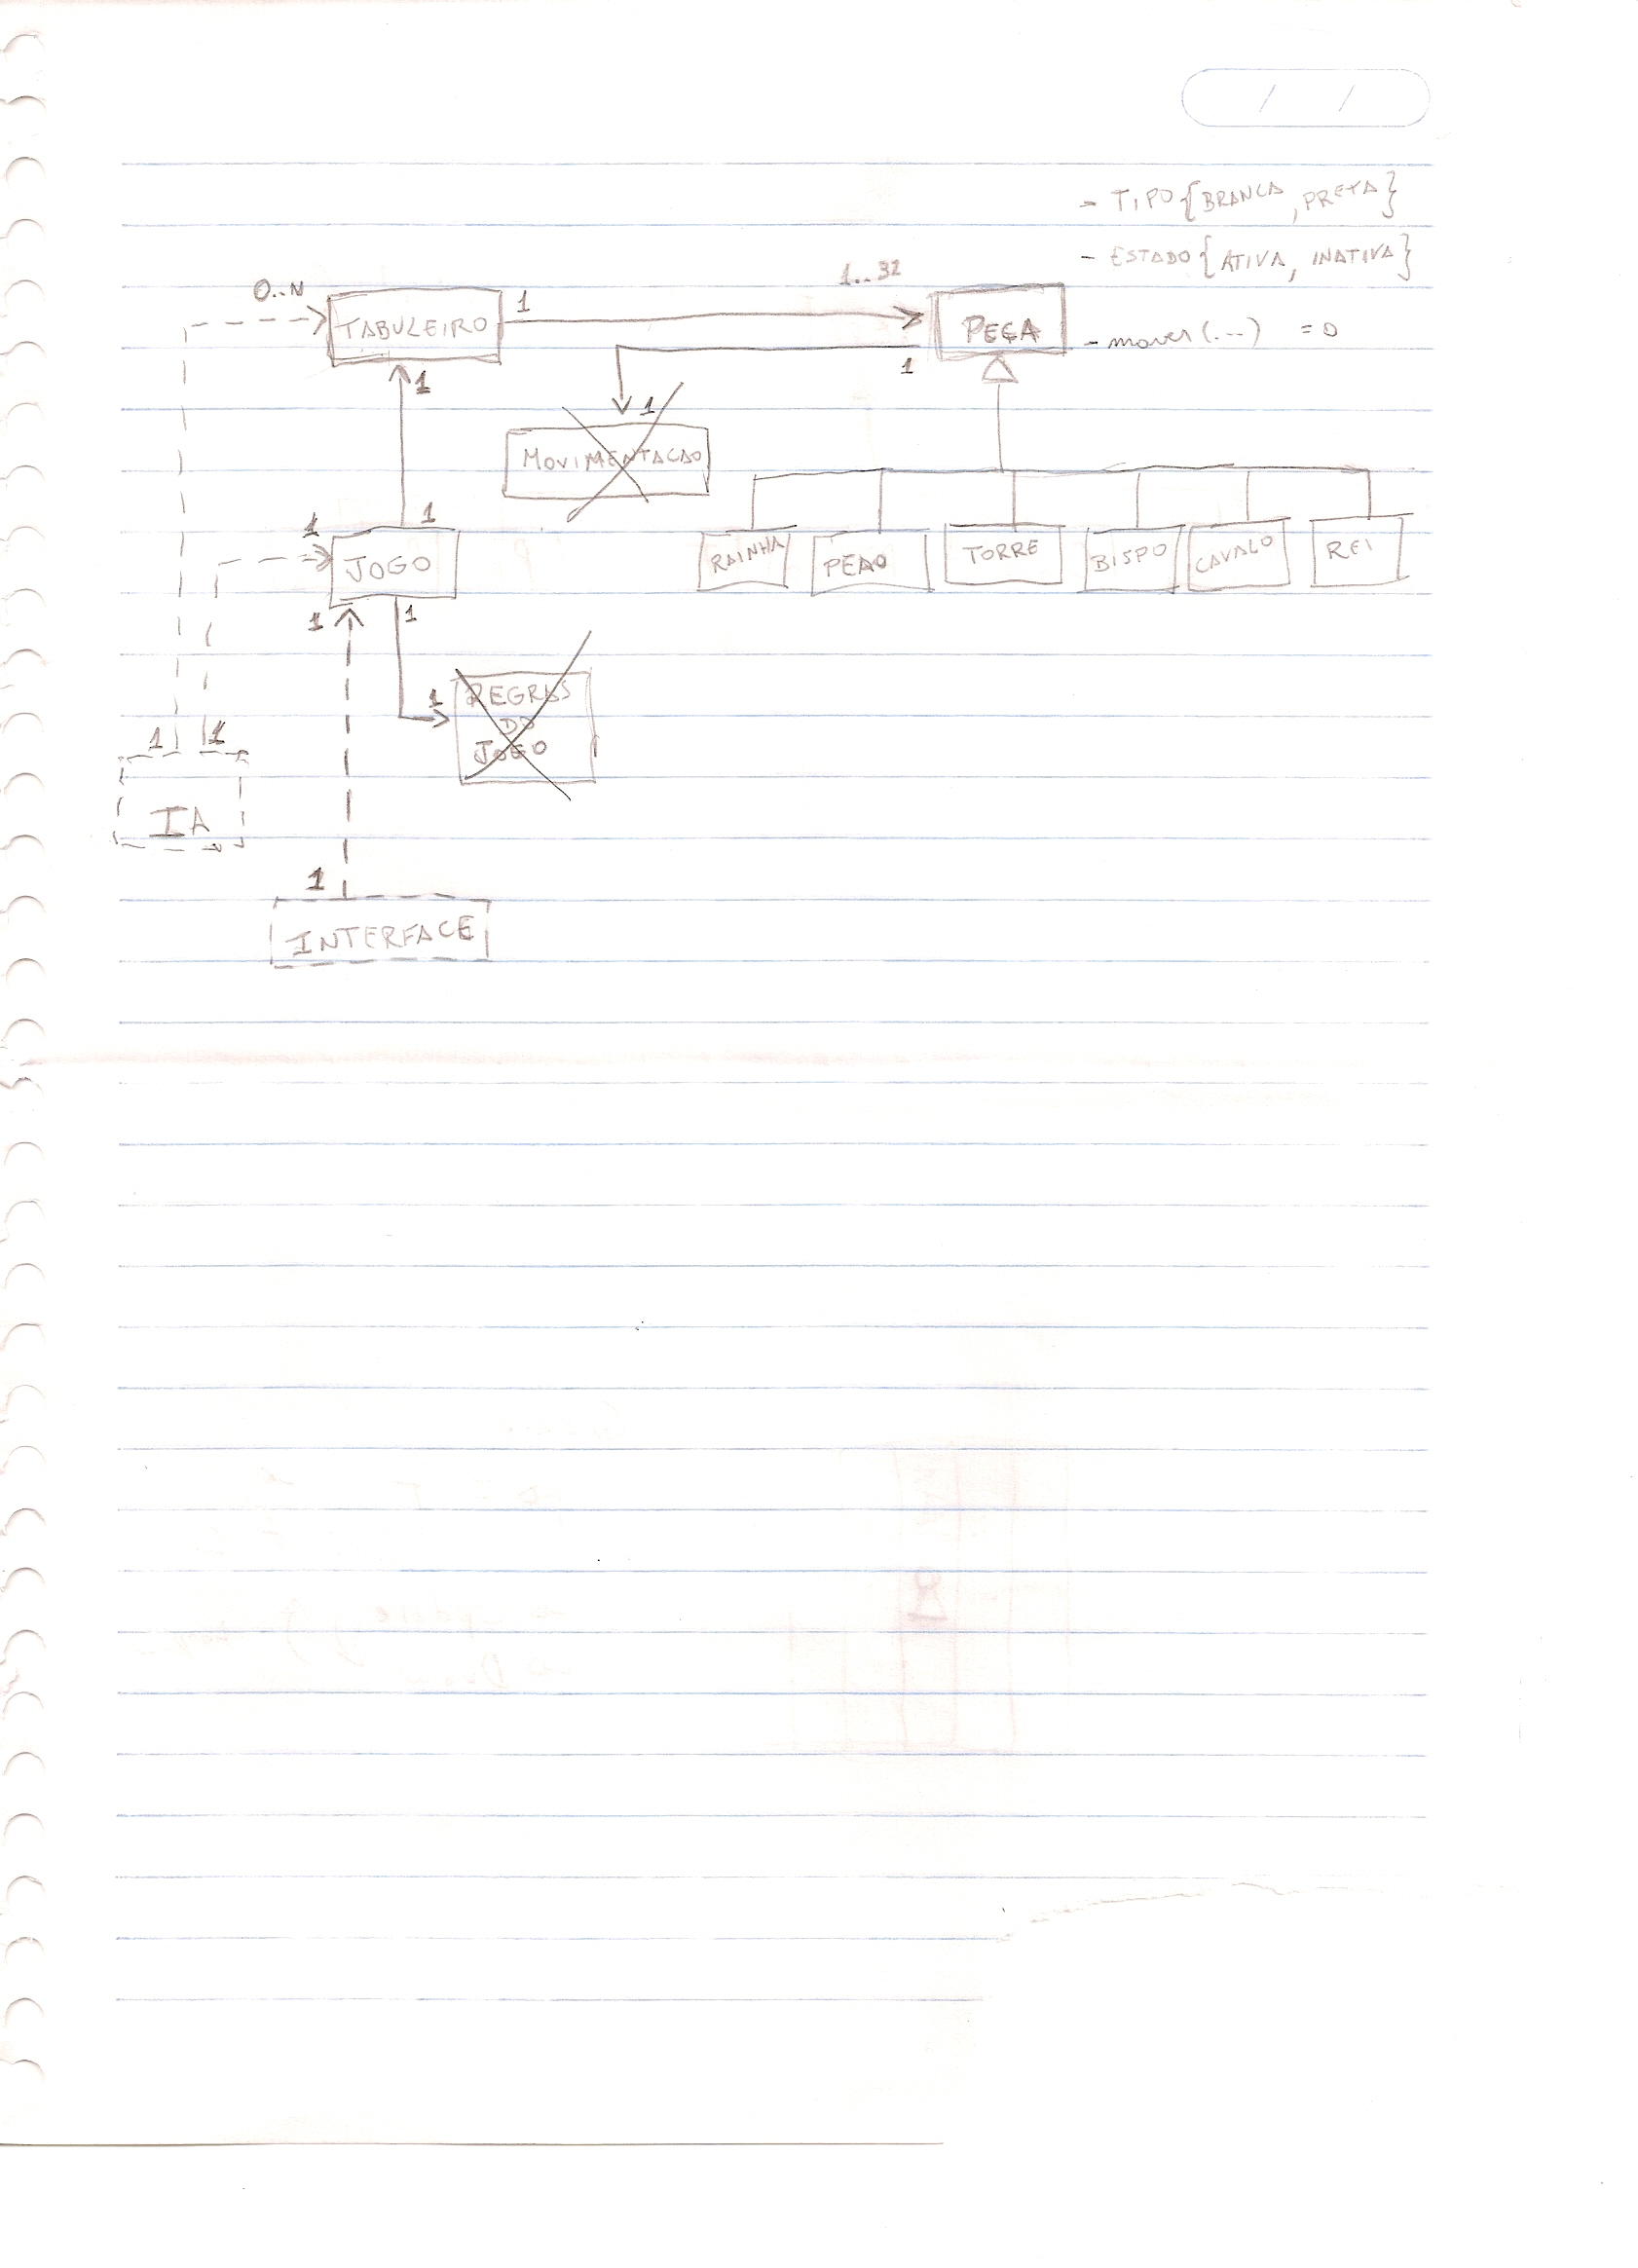 - TIPO {BRANCA, PRETA}
- ESTADO {ATIVA, INATIVA}
0..N
1
1..32
TABULEIRO
PEÇA
- mover (...) = 0
1
1
1
MOVIMENTACAO
1
1
JOGO
RAINHA
PEAO
TORRE
BISPO
CAVALO
REI
1
1
1
REGRAS
DO
JOGO
1
1
IA
1
INTERFACE